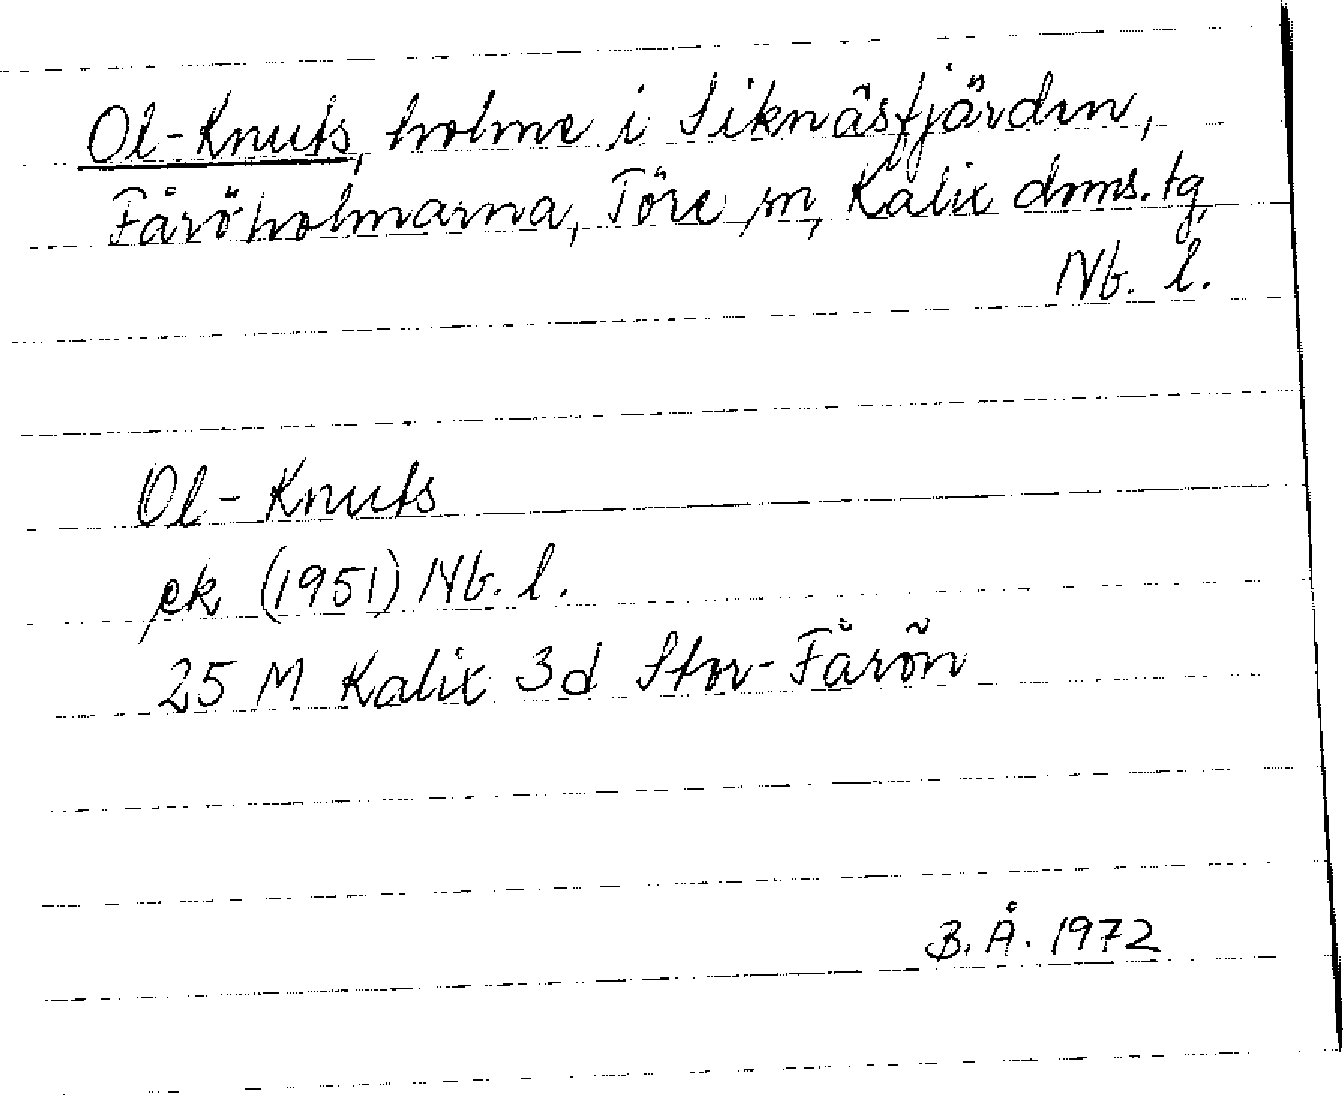 Ol-Knuts, holme i Siknäsfjärden,
Fåröholmarna, Töre sn, Kalix doms. tg,
Nb. l.
Ol-Knuts
ek (1951) Nb. l.
25 M Kalix 3d Stor-Fårön
B. Å. 1972